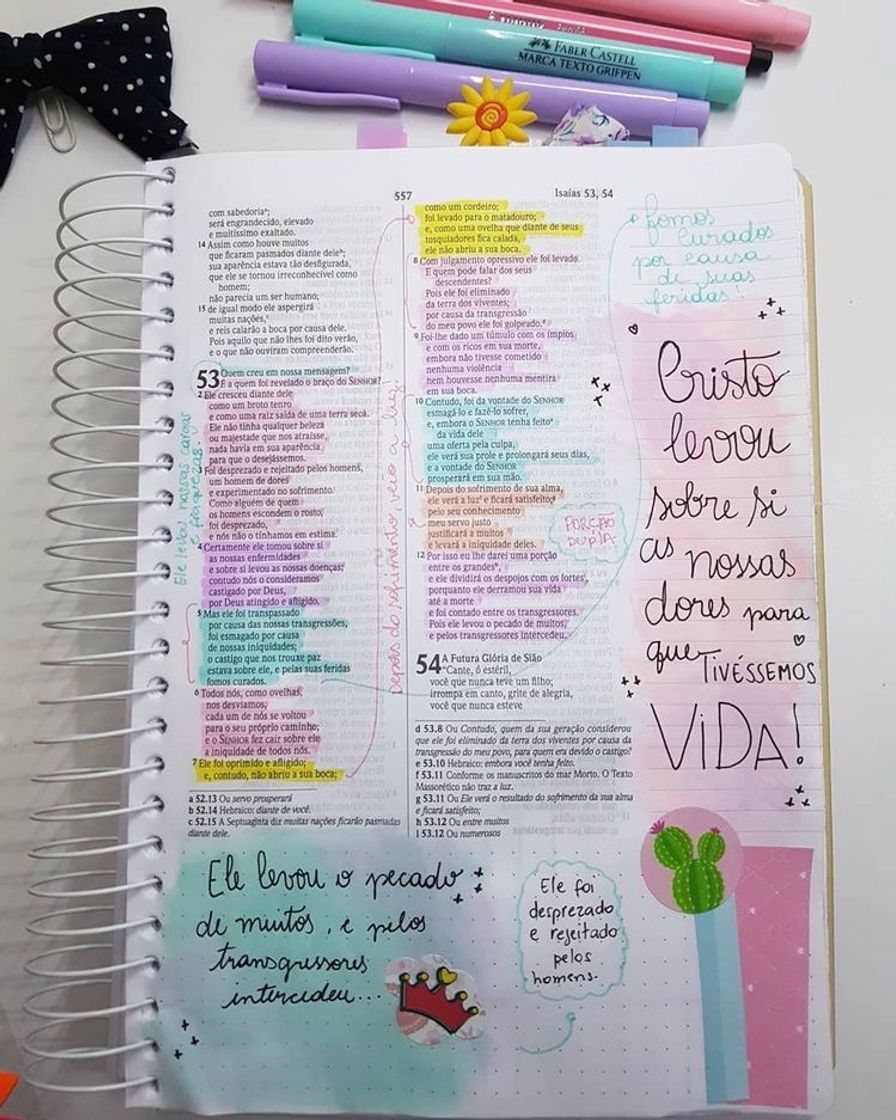 FABER CASTELL
MARCA TEXTO GRIFPEN
557
Isaías 53, 54
com sabedoria<sup>a</sup>;
será engrandecido, elevado
e muitíssimo exaltado.
14 Assim como houve muitos
que ficaram pasmados diante dele<sup>b</sup>;
sua aparência estava tão desfigurada,
que ele se tornou irreconhecível como
homem;
não parecia um ser humano;
15 de igual modo ele aspergirá
muitas nações,<sup>c</sup>
e reis calarão a boca por causa dele.
Pois aquilo que não lhes foi dito verão,
e o que não ouviram compreenderão.
53 Quem creu em nossa mensagem?
E a quem foi revelado o braço do SENHOR?
2 Ele cresceu diante dele
como um broto tenro
e como uma raiz saída de uma terra seca.
Ele não tinha qualquer beleza
ou majestade que nos atraísse,
nada havia em sua aparência
para que o desejássemos.
3 Foi desprezado e rejeitado pelos homens,
um homem de dores
e experimentado no sofrimento.
Como alguém de quem
os homens escondem o rosto,
foi desprezado,
e nós não o tínhamos em estima.
4 Certamente ele tomou sobre si
as nossas enfermidades
e sobre si levou as nossas doenças;
contudo nós o consideramos
castigado por Deus,
por Deus atingido e afligido.
5 Mas ele foi transpassado
por causa das nossas transgressões,
foi esmagado por causa
de nossas iniquidades;
o castigo que nos trouxe paz
estava sobre ele, e pelas suas feridas
fomos curados.
6 Todos nós, como ovelhas,
nos desviamos,
cada um de nós se voltou
para o seu próprio caminho;
e o SENHOR fez cair sobre ele
a iniquidade de todos nós.
7 Ele foi oprimido e afligido;
e, contudo, não abriu a sua boca;
a 52.13 Ou servo prosperará
b 52.14 Hebraico: diante de você.
c 52.15 A Septuaginta diz muitas nações ficarão pasmadas
diante dele.
Ele levou nossas cargas
e fraquezas.
Depois do sofrimento, veio a luz!
como um cordeiro;
foi levado para o matadouro;
e, como uma ovelha que diante de seus
tosquiadores fica calada,
ele não abriu a sua boca.
8 Com julgamento opressivo ele foi levado.
E quem pode falar dos seus
descendentes?
Pois ele foi eliminado
da terra dos viventes;
por causa da transgressão
do meu povo ele foi golpeado.<sup>d</sup>
9 Foi-lhe dado um túmulo com os ímpios
e com os ricos em sua morte,
embora não tivesse cometido
nenhuma violência
nem houvesse nenhuma mentira
em sua boca.
10 Contudo, foi da vontade do SENHOR
esmagá-lo e fazê-lo sofrer,
e, embora o SENHOR tenha feito<sup>e</sup>
da vida dele
uma oferta pela culpa,
ele verá sua prole e prolongará seus dias,
e a vontade do SENHOR
prosperará em sua mão.
11 Depois do sofrimento de sua alma,
ele verá a luz<sup>f</sup> e ficará satisfeito<sup>g</sup>
pelo seu conhecimento
meu servo justo
justificará a muitos
e levará a iniquidade deles.
12 Por isso eu lhe darei uma porção
entre os grandes<sup>h</sup>,
e ele dividirá os despojos com os fortes<sup>i</sup>,
porquanto ele derramou sua vida
até a morte
e foi contado entre os transgressores.
Pois ele levou o pecado de muitos,
e pelos transgressores intercedeu.
PORÇÃO
DUPLA
54 A Futura Glória de Sião
"Cante, ó estéril,
você que nunca teve um filho;
irrompa em canto, grite de alegria,
você que nunca esteve
d 53.8 Ou Contudo, quem da sua geração considerou
que ele foi eliminado da terra dos viventes por causa da
transgressão do meu povo, para quem era devido o castigo?
e 53.10 Hebraico: embora você tenha feito.
f 53.11 Conforme os manuscritos do mar Morto. O Texto
Massorético não traz a luz.
g 53.11 Ou Ele verá o resultado do sofrimento da sua alma
e ficará satisfeito;
h 53.12 Ou entre muitos
i 53.12 Ou numerosos
fomos
curados
por causa
de suas
feridas!
Cristo
levou
sobre si
as nossas
dores para
que TIVÉSSEMOS
VIDA!
Ele levou o pecado
de muitos, e pelos
transgressores
intercedeu...
Ele foi
desprezado
e rejeitado
pelos
homens.